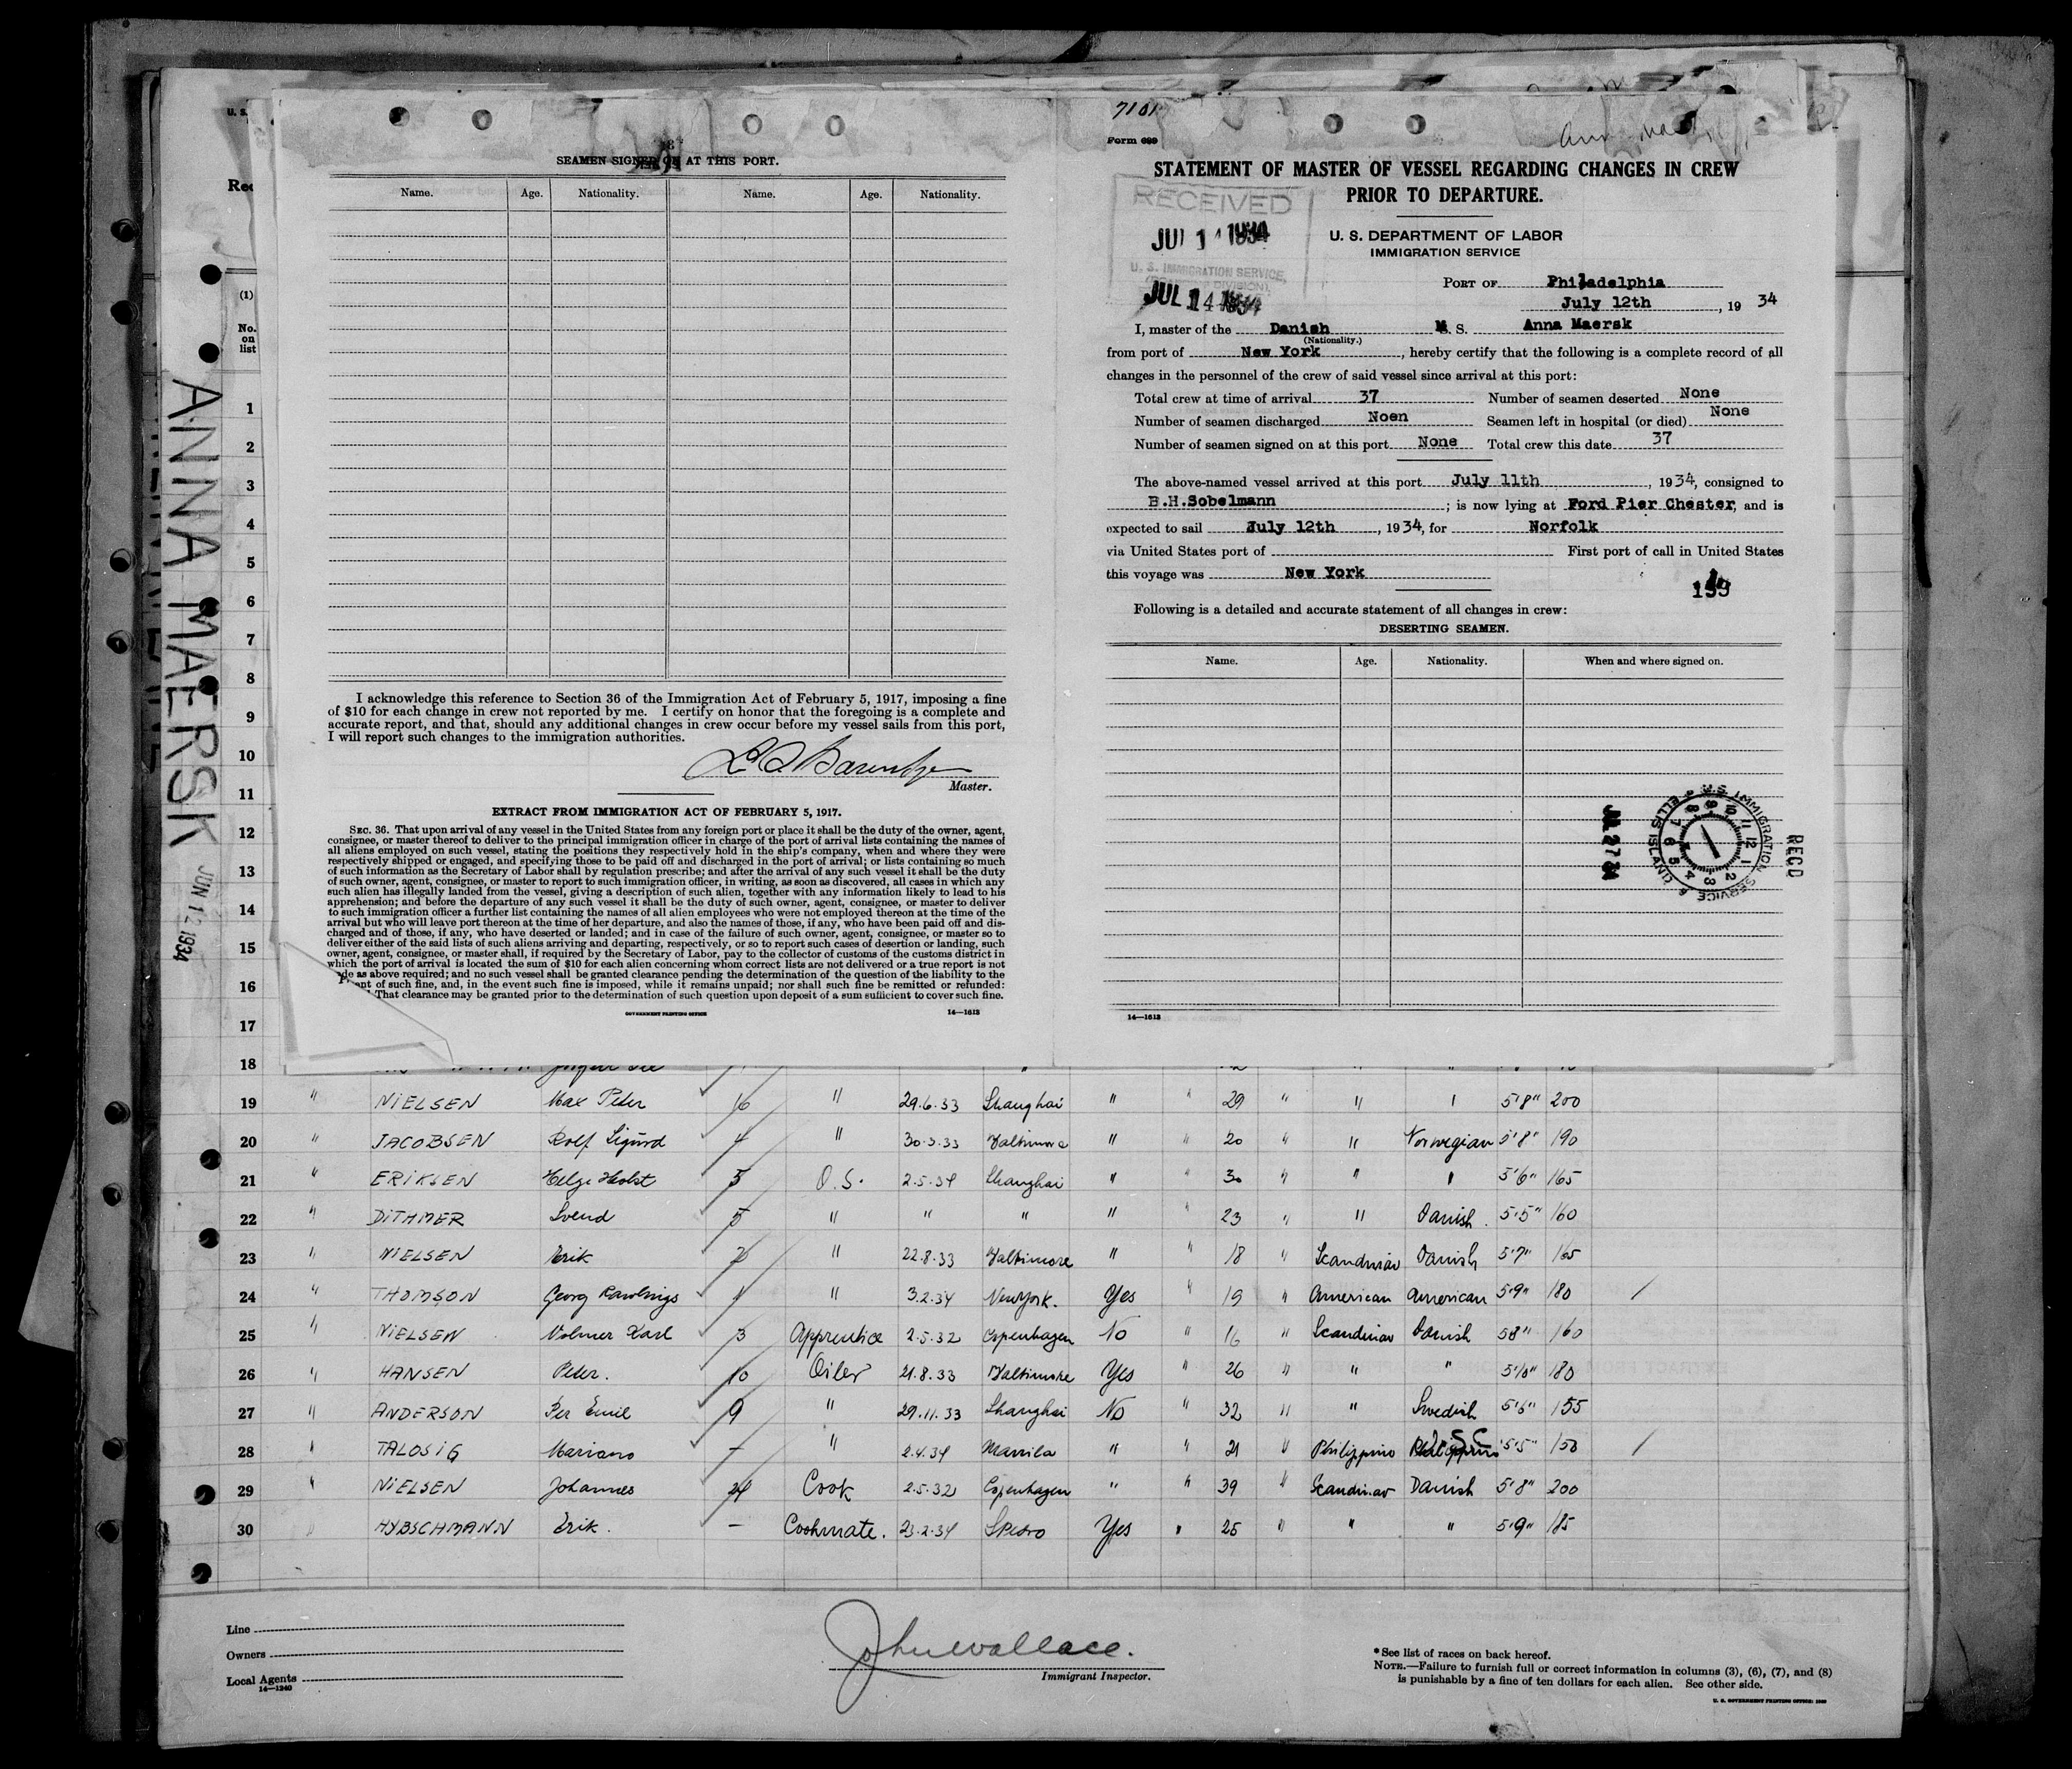 U. S.
Rec
(1)
No.
on
list
ANNA MAERSK
JUN 12 1934
SEAMEN SIGNED ON AT THIS PORT.
Name. Age. Nationality. Name. Age. Nationality.
I acknowledge this reference to Section 36 of the Immigration Act of February 5, 1917, imposing a fine
of $10 for each change in crew not reported by me. I certify on honor that the foregoing is a complete and
accurate report, and that, should any additional changes in crew occur before my vessel sails from this port,
I will report such changes to the immigration authorities.
Master.
EXTRACT FROM IMMIGRATION ACT OF FEBRUARY 5, 1917.
SEC. 36. That upon arrival of any vessel in the United States from any foreign port or place it shall be the duty of the owner, agent,
consignee, or master thereof to deliver to the principal immigration officer in charge of the port of arrival lists containing the names of
all aliens employed on such vessel, stating the positions they respectively hold in the ship's company, when and where they were
respectively shipped or engaged, and specifying those to be paid off and discharged in the port of arrival; or lists containing so much
of such information as the Secretary of Labor shall by regulation prescribe; and after the arrival of any such vessel it shall be the duty
of such owner, agent, consignee, or master to report to such immigration officer, in writing, as soon as discovered, all cases in which any
such alien has illegally landed from the vessel, giving a description of such alien, together with any information likely to lead to his
apprehension; and before the departure of any such vessel it shall be the duty of such owner, agent, consignee, or master to deliver
to such immigration officer a further list containing the names of all alien employees who were not employed thereon at the time of the
arrival but who will leave port thereon at the time of her departure, and also the names of those, if any, who have been paid off and dis-
charged and of those, if any, who have deserted or landed; and in case of the failure of such owner, agent, consignee, or master so to
deliver either of the said lists of such aliens arriving and departing, respectively, or so to report such cases of desertion or landing, such
owner, agent, consignee, or master shall, if required by the Secretary of Labor, pay to the collector of customs of the customs district in
which the port of arrival is located the sum of $10 for each alien concerning whom correct lists are not delivered or a true report is not
de as above required; and no such vessel shall be granted clearance pending the determination of the question of the liability to the
ent of such fine, and, in the event such fine is imposed, while it remains unpaid; nor shall such fine be remitted or refunded:
That clearance may be granted prior to the determination of such question upon deposit of a sum sufficient to cover such fine.
GOVERNMENT PRINTING OFFICE 14—1613
7101
Form 689
STATEMENT OF MASTER OF VESSEL REGARDING CHANGES IN CREW
PRIOR TO DEPARTURE.
RECEIVED
JUL 14 1934
U. S. IMMIGRATION SERVICE
JUL 14 1934
U. S. DEPARTMENT OF LABOR
IMMIGRATION SERVICE
PORT OF Philadelphia
July 12th, 19 34
I, master of the Danish M. S. Anna Maersk
(Nationality.)
from port of New York, hereby certify that the following is a complete record of all
changes in the personnel of the crew of said vessel since arrival at this port:
Total crew at time of arrival 37 Number of seamen deserted None
Number of seamen discharged Noen Seamen left in hospital (or died) None
Number of seamen signed on at this port None Total crew this date 37
The above-named vessel arrived at this port July 11th, 1934, consigned to
B.H.Sobelmann; is now lying at Ford Pier Chester, and is
expected to sail July 12th, 1934, for Norfolk
via United States port of First port of call in United States
this voyage was New York
Following is a detailed and accurate statement of all changes in crew:
DESERTING SEAMEN.
Name. Age. Nationality. When and where signed on.
JUL 27 34
U. S. IMMIGRATION SERVICE ELLIS ISLAND
REC'D
14—1613
1
2
3
4
5
6
7
8
9
10
11
12
13
14
15
16
17
18
19 " NIELSEN Max Peter 16 " 29.6.33 Shanghai " " 29 " " " 5'8" 200
20 " JACOBSEN Rolf Sigurd 4 " 30.3.33 Baltimore " " 20 " " Norwegian 5'8" 190
21 " ERIKSEN Helge Holst 5 O.S. 2.5.34 Shanghai " " 30 " " " 5'6" 165
22 " DITHMER Svend 5 " " " " " 23 " " Danish 5'5" 160
23 " NIELSEN Erik 2 " 22.8.33 Baltimore " " 18 " Scandinav Danish 5'7" 165
24 " THOMSON Georg Rawlings 1 " 3.2.34 New York. Yes " 19 " American American 5'9" 180
25 " NIELSEN Volmer Karl 3 Apprentice 2.5.32 Copenhagen No " 16 " Scandinav Danish 5'8" 160
26 " HANSEN Peter. 10 Oiler 21.8.33 Baltimore Yes " 26 " " " 5'10" 180
27 " ANDERSON Per Emil 9 " 29.11.33 Shanghai No " 32 " " Swedish 5'6" 155
28 " TALOSIG Mariano – " 2.4.34 Manila " " 21 " Philippino 5'5" 150
29 " NIELSEN Johannes 24 Cook 2.5.32 Copenhagen " " 39 " Scandinav Danish 5'8" 200
30 " HYBSCHMANN Erik. – Cookmate. 23.2.34 S Pedro Yes " 25 " " " 5'9" 185
Line
Owners
Local Agents
14—1240
John Wallace.
Immigrant Inspector.
* See list of races on back hereof.
NOTE.—Failure to furnish full or correct information in columns (3), (6), (7), and (8)
is punishable by a fine of ten dollars for each alien. See other side.
U. S. GOVERNMENT PRINTING OFFICE